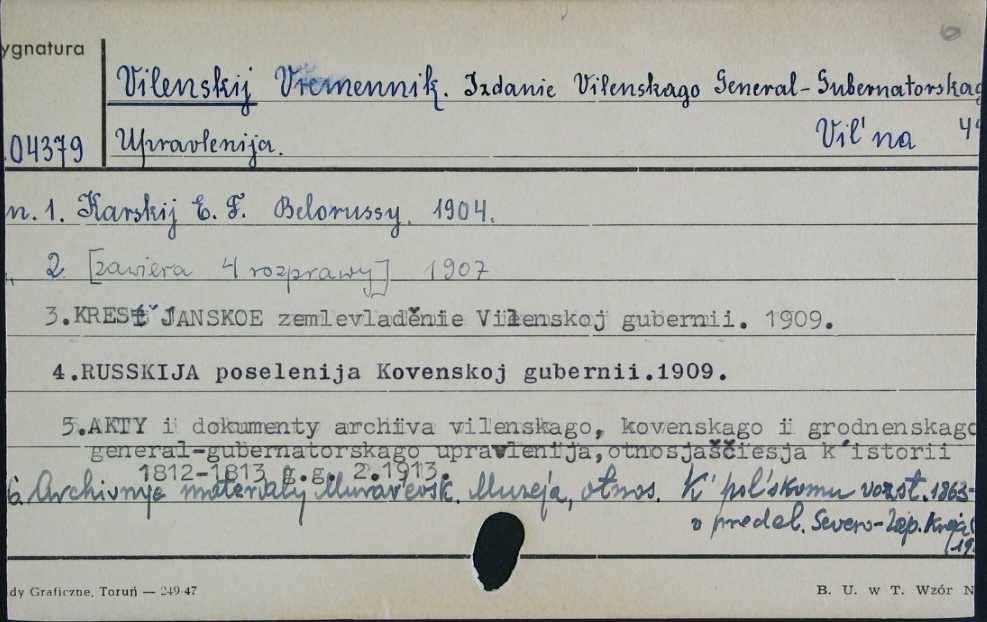 ygnatura
Vilenskij Vremennik. Izdanie Vilenskago General-Gubernatorskag
04379 Upravlenija. Vil'na 4°
n. 1. Karskij E. F. Belorussy. 1904.
" 2. [zawiera 4 rozprawy] 1907
3. KREST'JANSKOE zemlevladěnie Vilenskoj gubernii. 1909.
4. RUSSKIJA poselenija Kovenskoj gubernii.1909.
5. AKTY i dokumenty archiva vilenskago, kovenskago i grodnenskago
general-gubernatorskago upravlenija,otnosjaščiesja k istorii
1812-1813 g.g. 2.1913.
6. Archivnye materialy Murav'evsk. Muzeja, otnos. k pol'skomu vozst. 1863-
v predel. Severo-Zap. Kraja
(19
dy Graficzne, Toruń — 249-47 B. U. w T. Wzór N